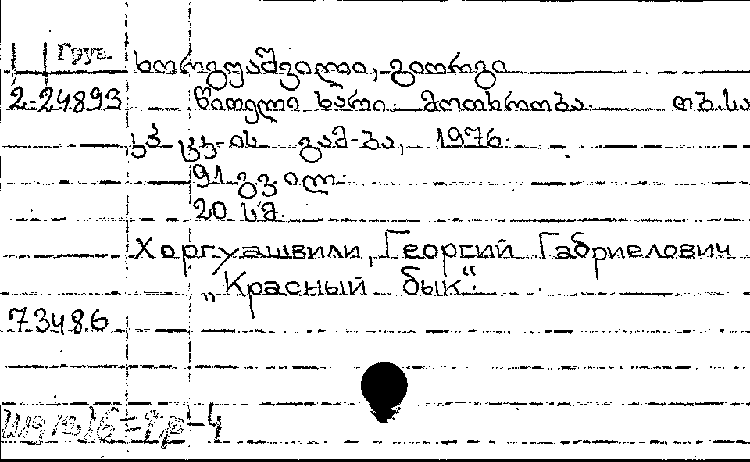 Груз.
ხორგუაშვილი, გიორგი
2-24893 წითელი ხარი. მოთხრობა. თბ. სა
კპ ცკ-ის გამ-ბა, 1976.
91 გვ. ილ.
20 სმ.
Хоргуашвили, Георгий Габриелович
„Красный бык“.
73486